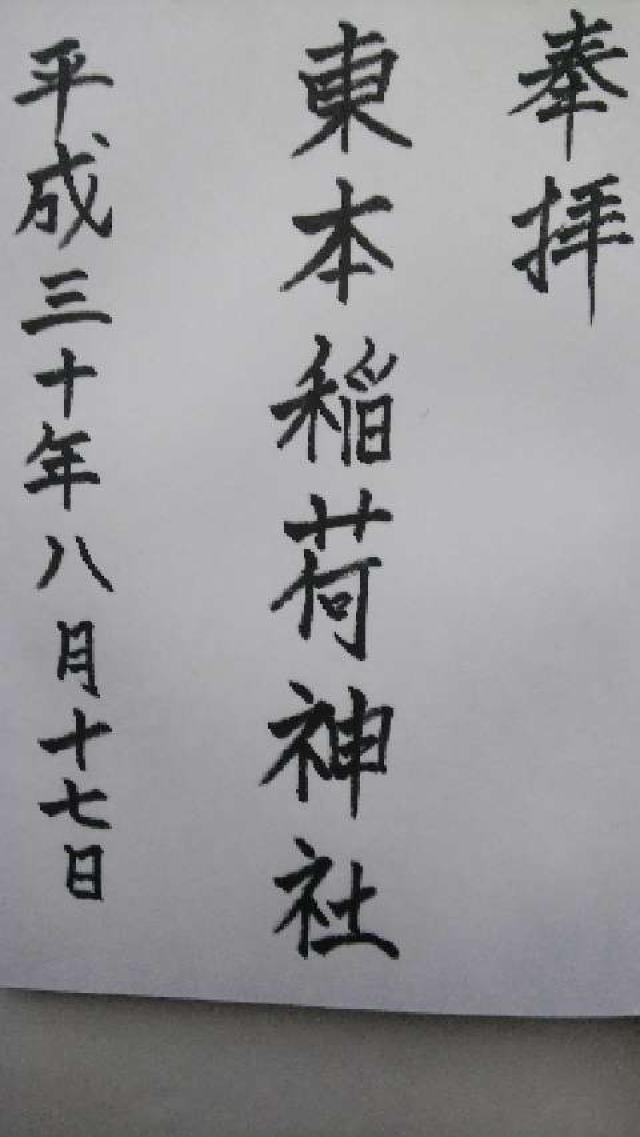 奉拝
東本稲荷神社
平成三十年八月十七日